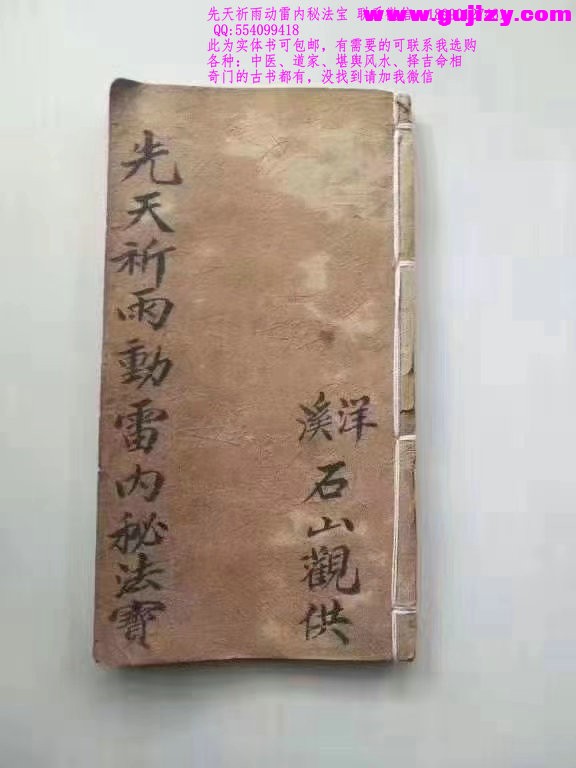 先天祈雨动雷内秘法宝
www.gujizy.com
QQ:554099418
此为实体书可包邮，有需要的可联系我选购
各种：中医、道家、堪舆风水、择吉命相
奇门的古书都有，没找到请加我微信
先天祈雨動雷内秘法寳
洋溪
石山觀供